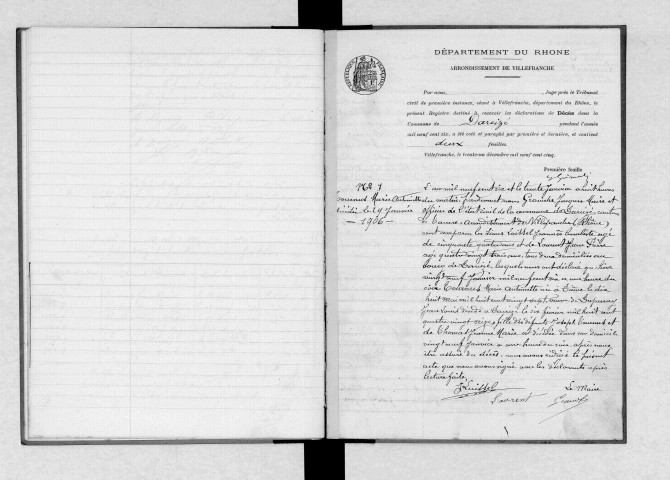 DÉPARTEMENT DU RHONE
ARRONDISSEMENT DE VILLEFRANCHE
Par nous, , Juge près le Tribunal
civil de première instance, séant à Villefranche, département du Rhône, le
présent Registre destiné à recevoir les déclarations de Décès dans la
Commune de Dareizé pendant l'année
mil neuf cent six, a été coté et paraphé par première et dernière, et contient
deux feuilles.
Villefranche, le trente-un décembre mil neuf cent cinq.
Première feuille
N° 1
Marie Antoinette
le 29 Janvier
1906
L'an mil neuf cent six et le trente Janvier à huit heures
du matin, pardevant nous Jacques Maire et
officier de l'état civil de la commune de Dareizé, canton
de Tarare, arrondissement de Villefranche (Rhône)
sont comparus les sieurs Luissel Jeannès âgé
de cinquante quatre ans et de Laurent Jean
âgé quatre vingt trois ans, tous deux domiciliés au
bourg de Dareizé, lesquels nous ont déclaré que hier
vingt neuf Janvier mil neuf cent six à une heure du
soir Marie Antoinette née à le dix
huit mai mil huit cent vingt sept, veuve de
Jean Louis décédé à Dareizé le dix février mil huit cent
quatre vingt seize, fille des défunts Joseph et
de Thomas Jeanne Marie est décédée dans son domicile
vingt neuf Janvier à une heure du soir, après nous
être assuré du décès, nous avons rédigé le présent
acte que nous avons signé avec les déclarants après
lecture faite.
Luissel Le Maire
Laurent